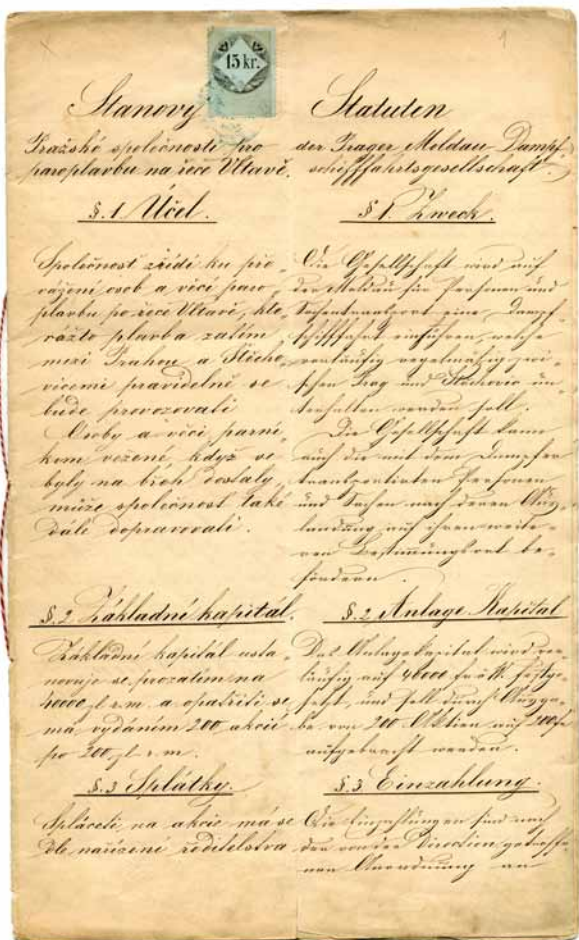 1
15 kr.
Stanovy
Pražské společnosti pro
paroplavbu na řece Vltavě.
§. 1 Účel.
Společnost zřídí ku pro-
vážení osob a věcí paro-
plavbu po řece Vltavě, kte-
rážto plavba zatím
mezi Prahou a Štěcho-
vicemi pravidelně se
bude provozovati
Osoby a věci parní-
kem vezené, když se
byly na břeh dostaly,
může společnost také
dále dopravovati.
§. 2 Základní kapitál.
Základní kapitál usta-
novuje se prozatím na
40000 zl r. m. a opatřiti se
má vydáním 200 akcií
po 200 zl r. m.
§. 3 Splátky.
Spláceti na akcie má se
dle nařízení ředitelstva
Statuten
der Prager Moldau Dampf-
schifffahrtsgesellschaft.
§ 1. Zweck.
Die Gesellschaft wird auf
der Moldau für Personen und
Sachentransport eine Dampf-
schifffahrt einführen, welche
vorläufig regelmäßig zwi-
schen Prag und Stěchovic un-
terhalten werden soll.
Die Gesellschaft kann
auch die mit dem Dampfer
transportirten Personen
und Sachen nach deren Aus-
landung auf ihren weite-
ren Bestimmungsort be-
fördern.
§. 2 Anlage Kapital
Das Anlagekapital wird vor-
läufig auf 40000 fr ö W. festge-
setzt, und soll durch Ausga-
be von 200 Aktien auf 200 fr
aufgebracht werden.
§. 3 Einzahlung.
Die Einzahlungen sind nach
der von der Direction getroffe-
nen Anordnung an